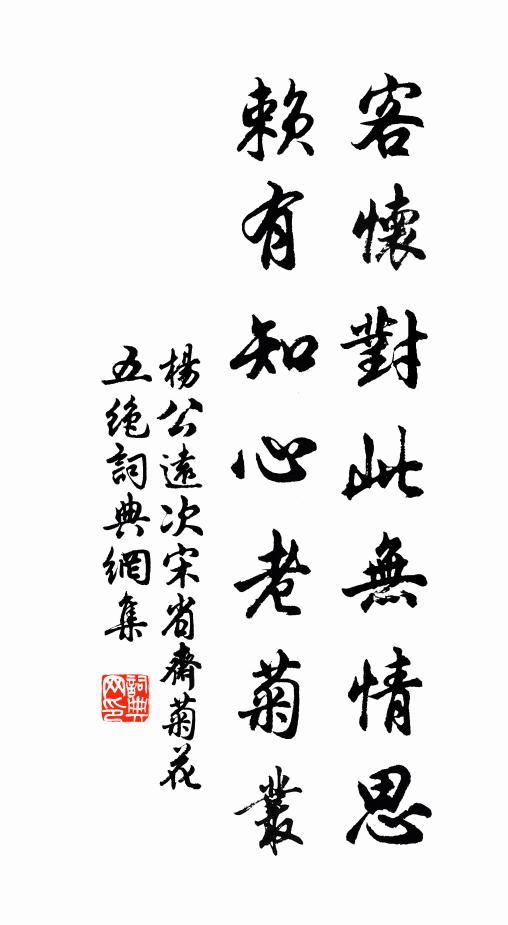 客懷對此無情思
賴有知心老菊叢
楊公遠次宋省齋菊花
五絕詞典網集
詞典網印